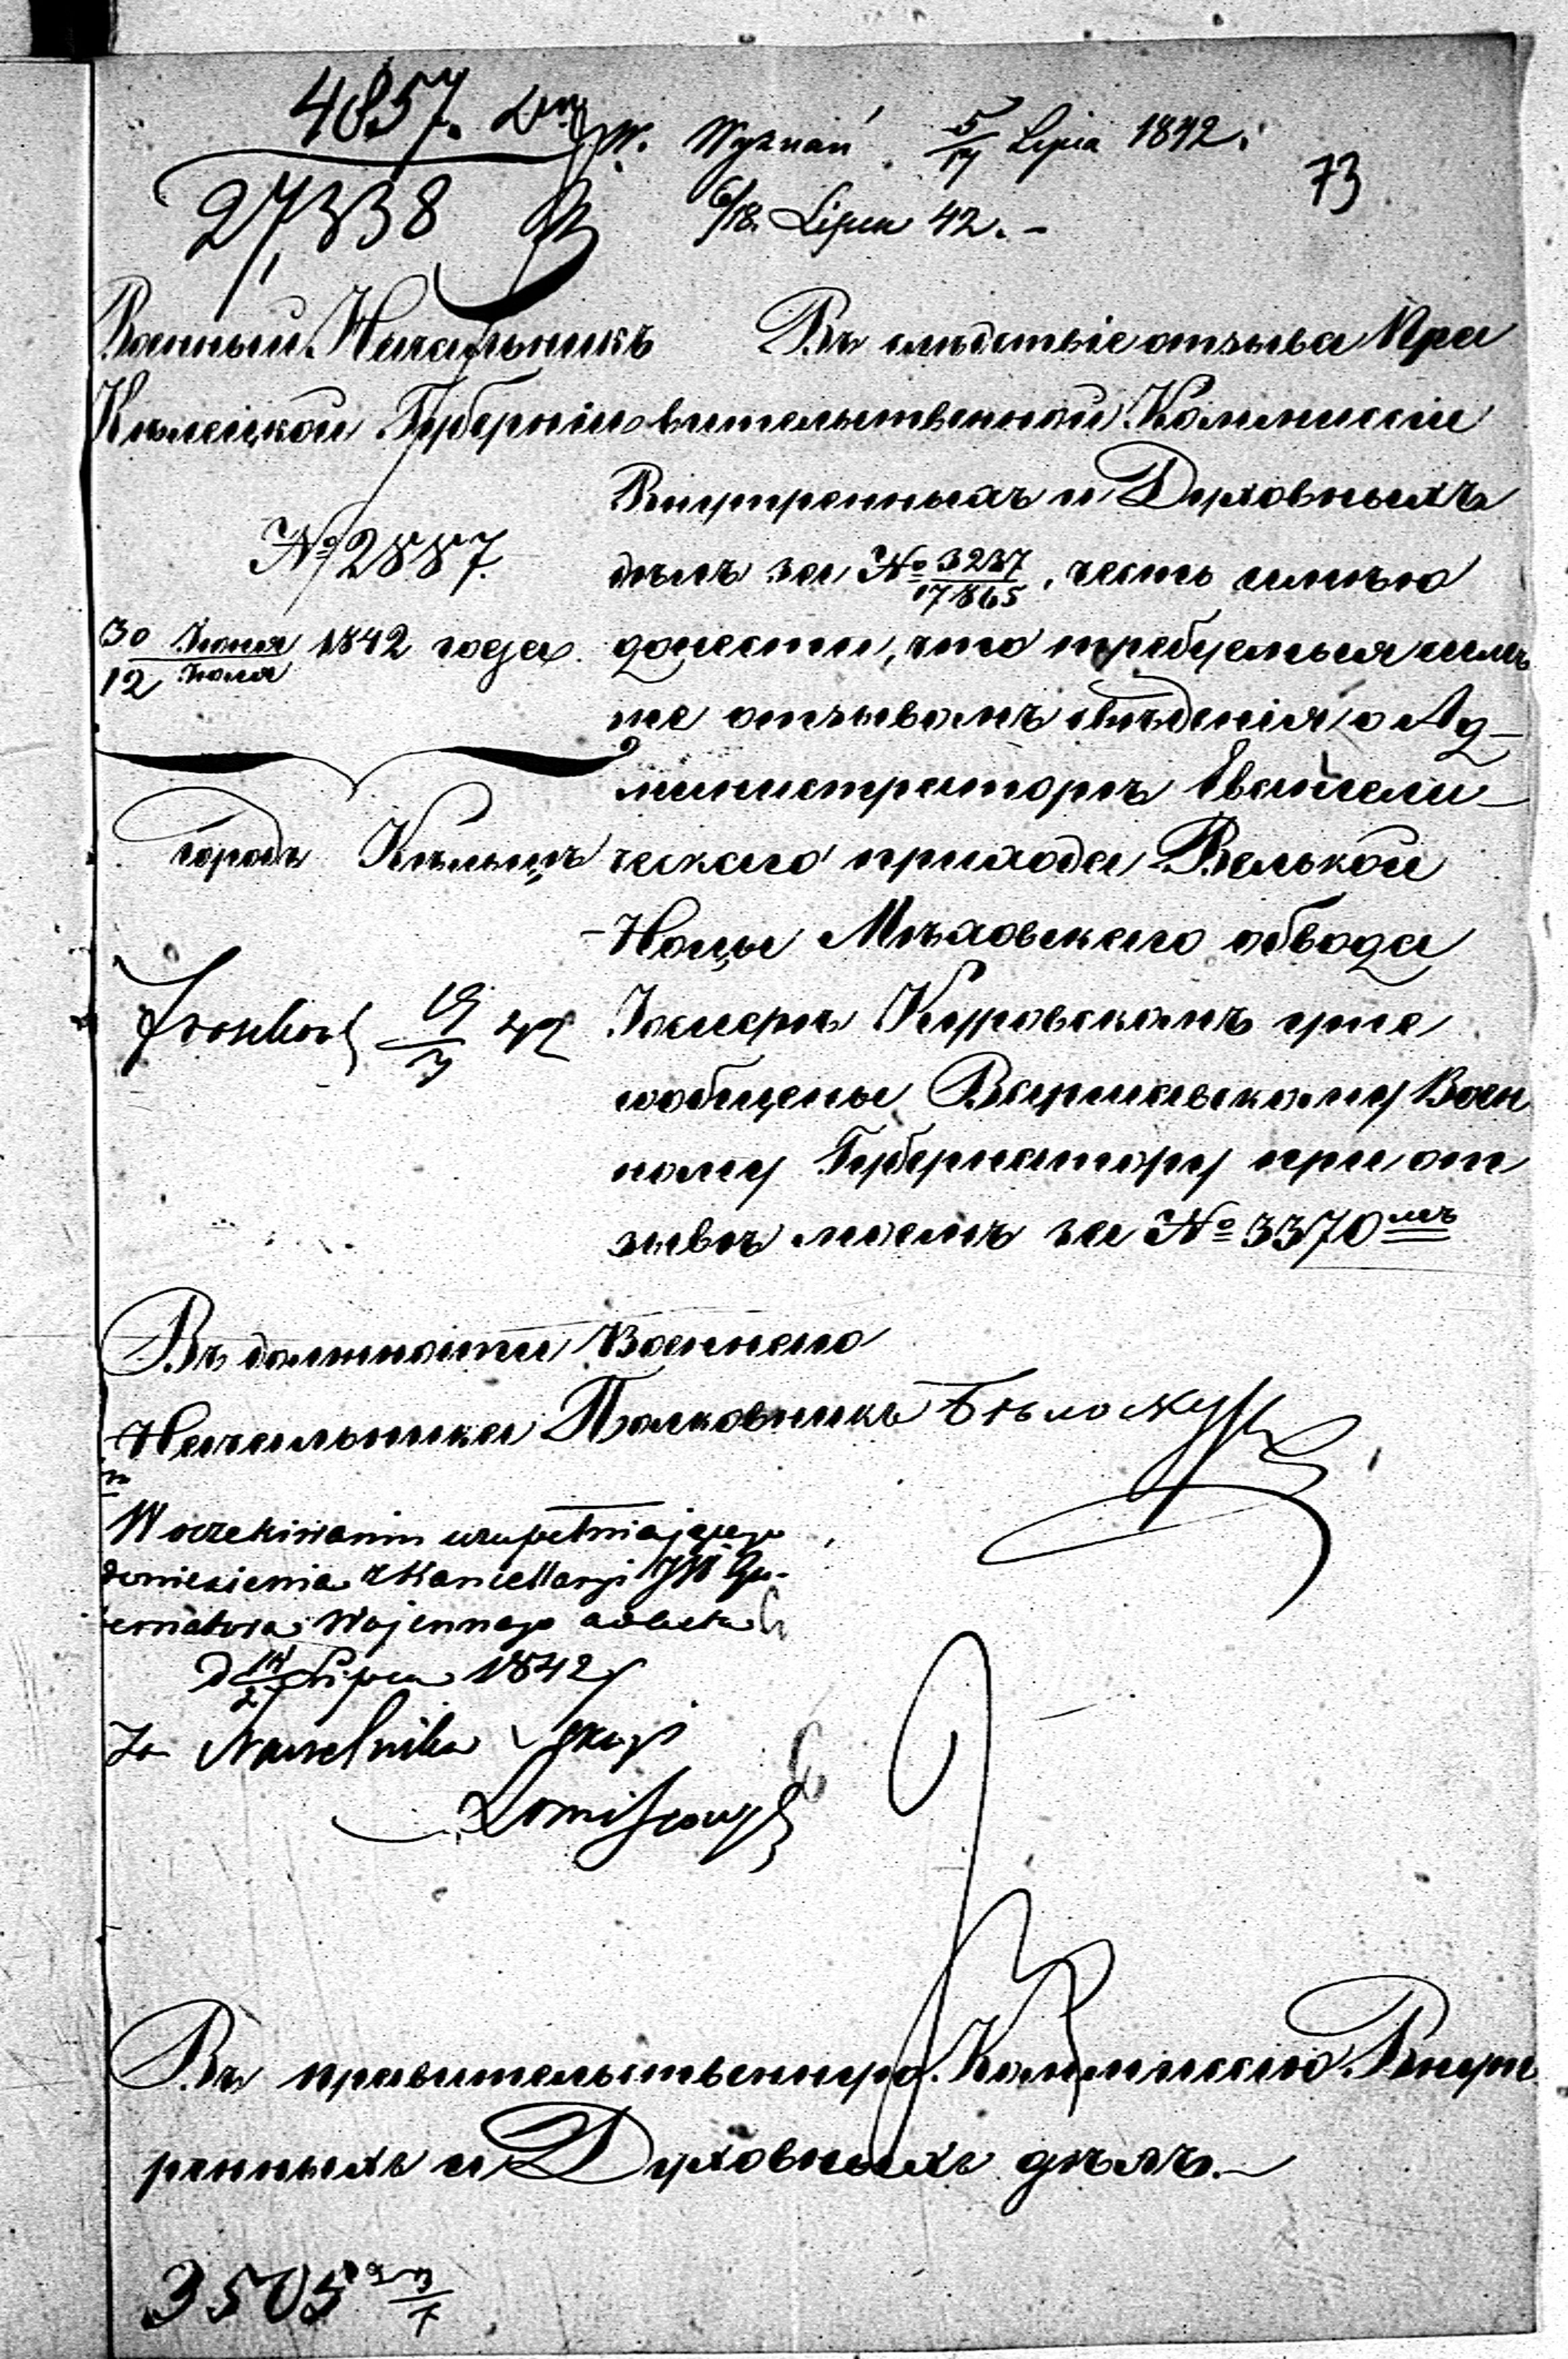 4857.
27,338
W. Wyznań 5/17 Lipca 1842.
6/18. Lipca 42. –
73
Военный Начальникъ
Кѣлецкой Губерніи
№ 2887.
30 Іюня / 12 Іюля 1842 года.
городъ Кѣльцы
19/7 42
Въ слѣдствіе отзыва Пра
вительственной Коммиссіи
Внутренныхъ и Духовныхъ
дѣлъ за № 3237/17865, честь имѣю
донести, что требуемыя симъ
же отзывомъ свѣденія о Ад–
министраторѣ Евангели–
ческаго прихода Велькой
–Ноцы Мѣховскаго обвода
Іосифѣ Куровскомъ уже
сообщены Варшавскому Воен
ному Губернатору при от
зывѣ моемъ за № 3370мъ
Въ должности Военнаго
Начальника Полковникъ
W oczekiwaniu uzupełniającego
doniesienia z Kancellaryi JW Gu-
bernatora Wojennego
d Lipca 1842
Za Naczelnika Sekcyi
Въ правительственную Коммиссію Внут
ренныхъ и Духовныхъ дѣлъ.–
3505